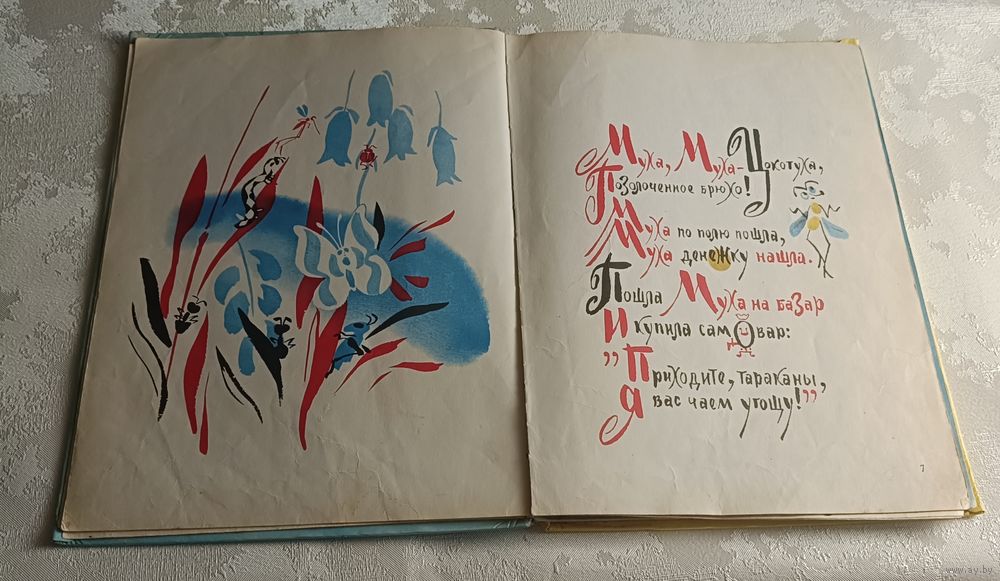 Муха, Муха-Цокотуха,
Позолоченное брюхо!
Муха по полю пошла,
Муха денежку нашла.
Пошла Муха на базар
И купила самовар:
"Приходите, тараканы,
Я вас чаем угощу!"
7
www.ay.by